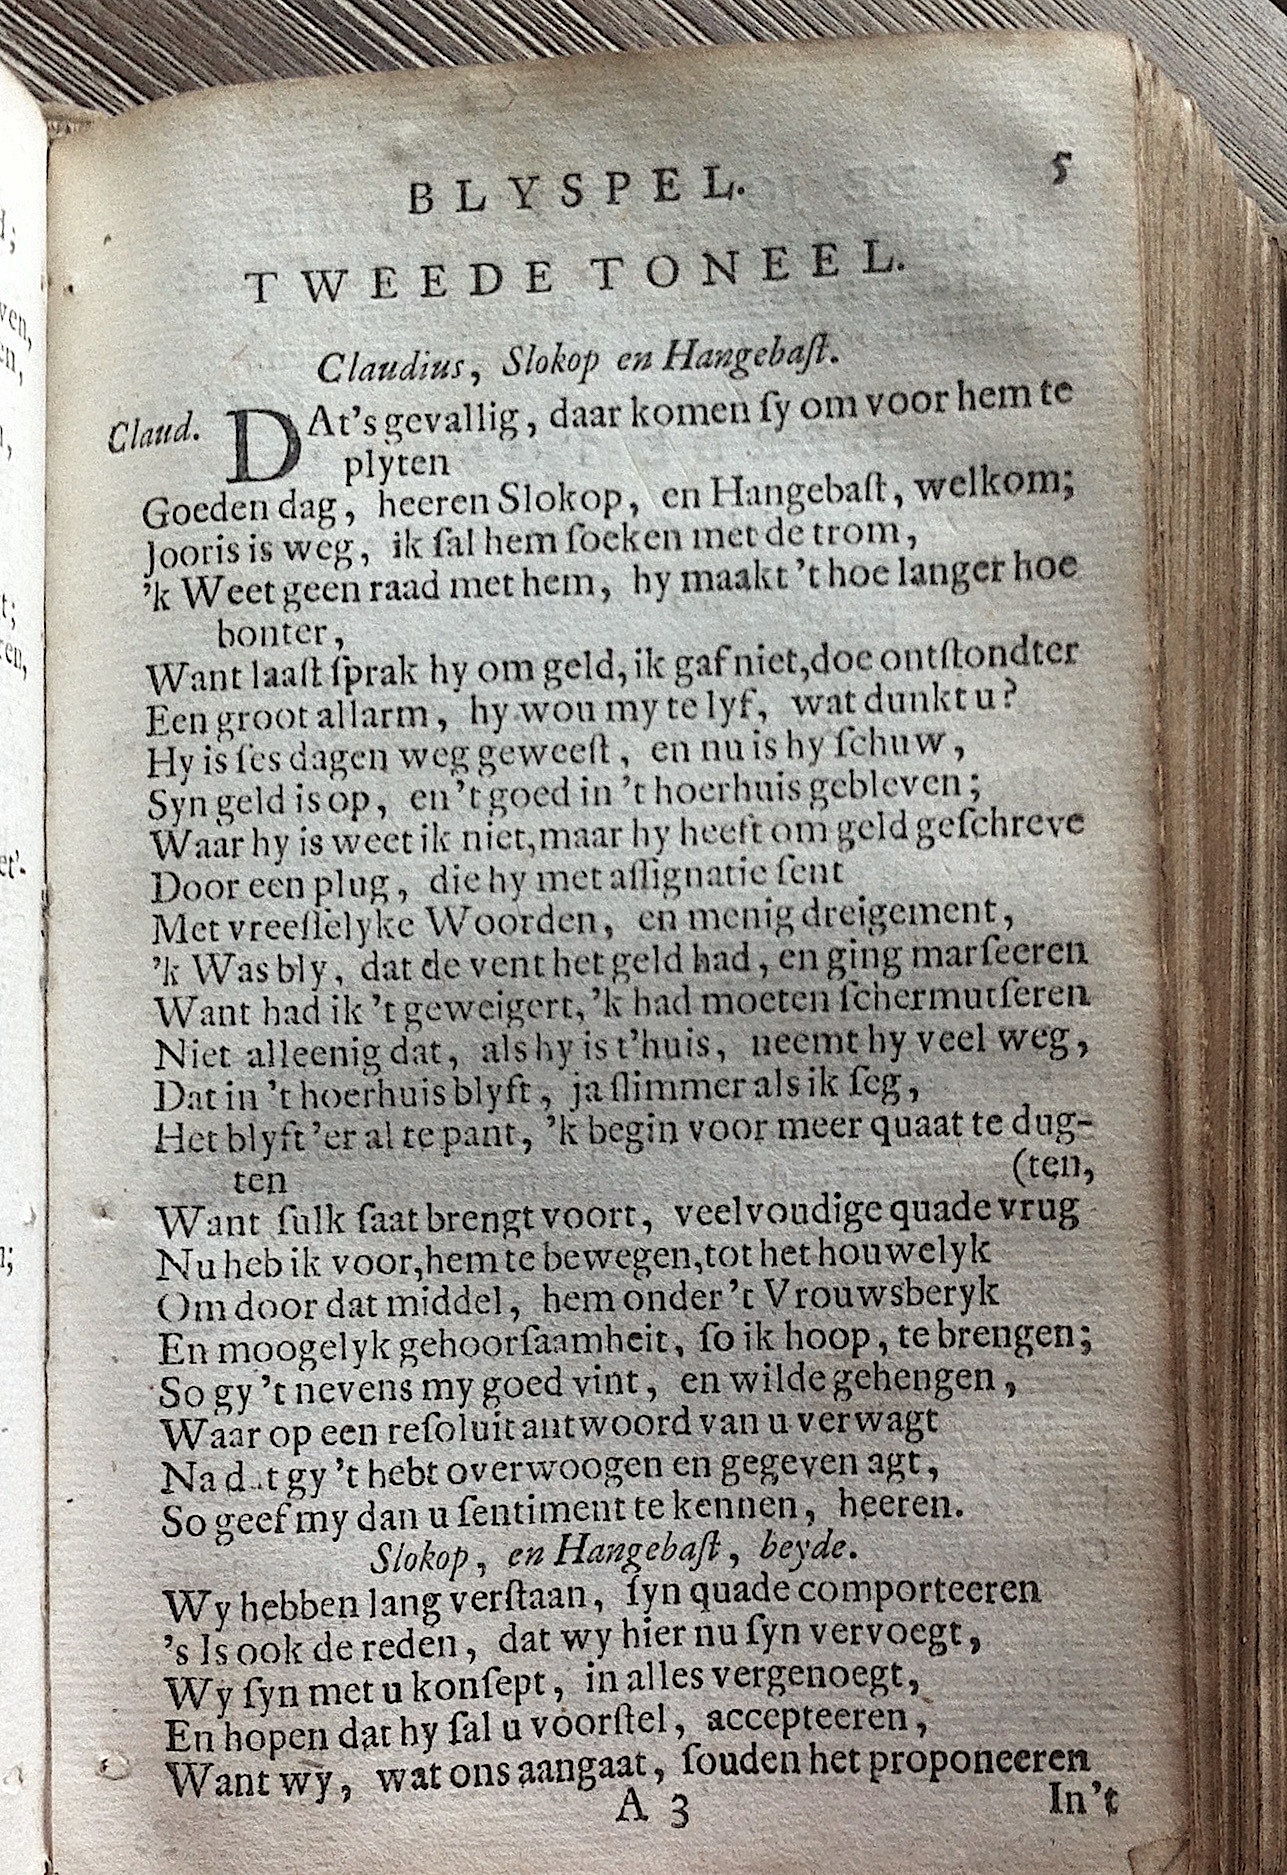 BLYSPEL. 5
TWEEDE TONEEL.
Claudius, Slokop en Hangebaſt.
Claud. DAt's gevallig, daar komen ſy om voor hem te
plyten
Goeden dag, heeren Slokop, en Hangebaſt, welkom;
Jooris is weg, ik ſal hem ſoeken met de trom,
'k Weet geen raad met hem, hy maakt 't hoe langer hoe
bonter,
Want laaſt ſprak hy om geld, ik gaf niet, doe ontſtondter
Een groot allarm, hy wou my te lyf, wat dunkt u?
Hy is ſes dagen weg geweeſt, en nu is hy ſchuw,
Syn geld is op, en 't goed in 't hoerhuis gebleven;
Waar hy is weet ik niet, maar hy heeft om geld geſchreve
Door een plug, die hy met aſſignatie ſent
Met vreeſſelyke Woorden, en menig dreigement,
'k Was bly, dat de vent het geld had, en ging marſeeren
Want had ik 't geweigert, 'k had moeten ſchermutſeren
Niet alleenig dat, als hy is t'huis, neemt hy veel weg,
Dat in 't hoerhuis blyft, ja ſlimmer als ik ſeg,
Het blyft 'er al te pant, 'k begin voor meer quaat te dug-
ten (ten,
Want ſulk ſaat brengt voort, veelvoudige quade vrug
Nu heb ik voor, hem te bewegen, tot het houwelyk
Om door dat middel, hem onder 't Vrouwsberyk
En moogelyk gehoorſaamheit, ſo ik hoop, te brengen;
So gy 't nevens my goed vint, en wilde gehengen,
Waar op een reſoluit antwoord van u verwagt
Na d.t gy 't hebt overwoogen en gegeven agt,
So geef my dan u ſentiment te kennen, heeren.
Slokop, en Hangebaſt, beyde.
Wy hebben lang verſtaan, ſyn quade comporteeren
's Is ook de reden, dat wy hier nu ſyn vervoegt,
Wy ſyn met u konſept, in alles vergenoegt,
En hopen dat hy ſal u voorſtel, accepteeren,
Want wy, wat ons aangaat, ſouden het proponeeren
A 3 In't